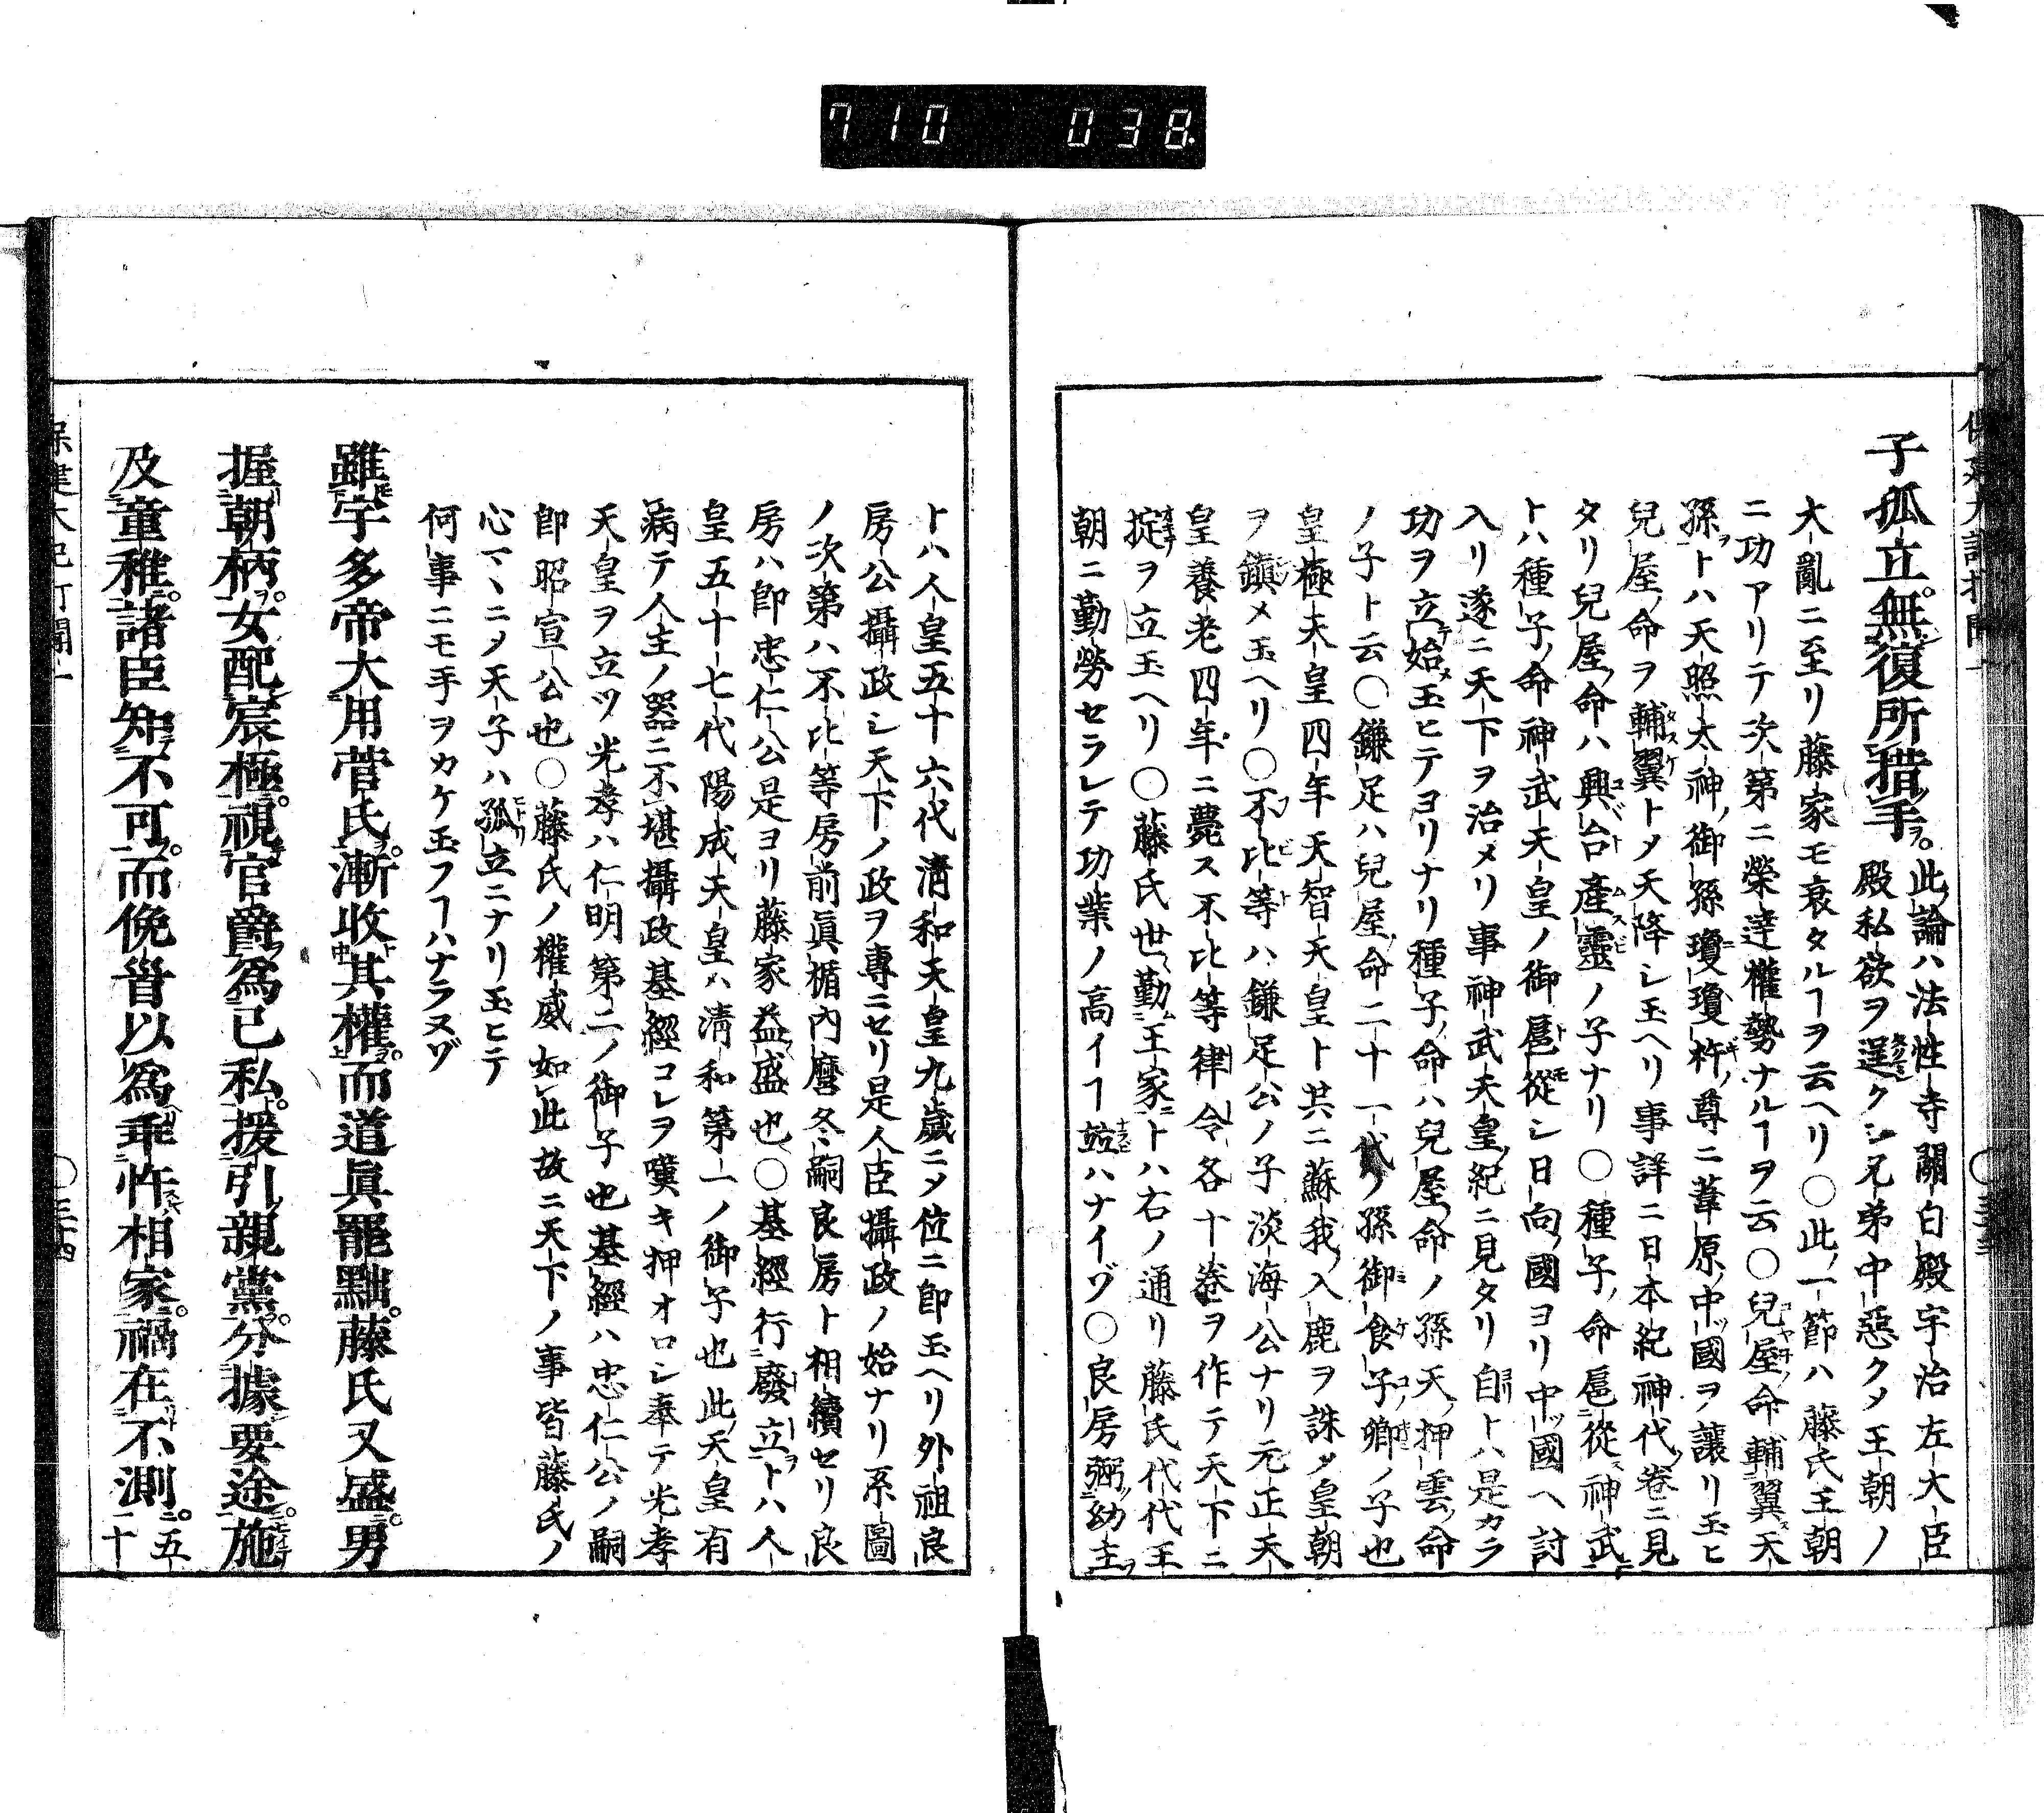 710 038
子孤立。無復所措手。此論ハ法性寺關白殿宇治左大臣
殿私欲ヲ逞クシ兄弟中惡クメ王朝ノ
大亂ニ至リ藤家モ衰タルヿヲ云ヘリ〇此一節ハ藤氏王朝
ニ功アリテ次第ニ榮達權勢ナルヿヲ云〇兒屋命輔翼天
孫トハ天照太神ノ御孫瓊瓊杵ノ尊ニ葦原ノ中ツ國ヲ讓リ玉ヒ
兒屋命ヲ輔翼トメ天降シ玉ヘリ事詳ニ日本紀神代ノ卷ニ見
タリ兒屋命ハ興台產靈ノ子ナリ〇種子命扈從神武
トハ種子ノ命神武天皇ノ御扈從シ日向ノ國ヨリ中ツ國ヘ討
入リ遂ニ天下ヲ治メリ事神武天皇ノ紀ニ見タリ自トハ是カラ
功ヲ立始玉ヒテヨリナリ種子ノ命ハ兒屋命ノ孫天ノ押雲ノ命
ノ子ト云〇鎌足ハ兒屋ノ命二十一代ノ孫御食子卿ノ子也
皇極天皇四年天智天皇ト共ニ蘇我ノ入鹿ヲ誅メ皇朝
ヲ鎭メ玉ヘリ〇不比等ハ鎌足公ノ子淡海公ナリ元正天
皇養老四年ニ薨ス不比等律令各十卷ヲ作テ天下ニ
掟ヲ立玉ヘリ〇藤氏世勤王家トハ右ノ通リ藤氏代代王
朝ニ勤勞セラレテ功業ノ高イヿ竝ハナイゾ〇良房弼幼主
トハ人皇五十六代淸和天皇九歲ニメ位ニ卽玉ヘリ外祖良
房公攝政シ天下ノ政ヲ專ニセリ是人臣攝政ノ始ナリ系圖
ノ次第ハ不比等房前眞楯內麿冬嗣良房ト相續セリ良
房ハ卽忠仁公是ヨリ藤家益盛也〇基經行廢立トハ人
皇五十七代陽成天皇ハ淸和第一ノ御子也此天皇有
病テ人主ノ器ニ不堪攝政基經コレヲ嘆キ押オロシ奉テ光孝
天皇ヲ立ツ光孝ハ仁明第二ノ御子也基經ハ忠仁公ノ嗣
卽昭宣公也〇藤氏ノ權威如此故ニ天下ノ事皆藤氏ノ
心マヽニメ天子ハ孤立ニナリ玉ヒテ
何事ニモ手ヲカケ玉フヿハナラヌゾ
雖宇多帝大用菅氏。漸收其權。而道眞罷黜。藤氏又盛。男
握朝柄。女配宸極。視官爵爲己私。援引親黨。分據要途。施
及童稚。諸臣知不可。而俛眉以爲乖忤相家。禍在不測。五
十